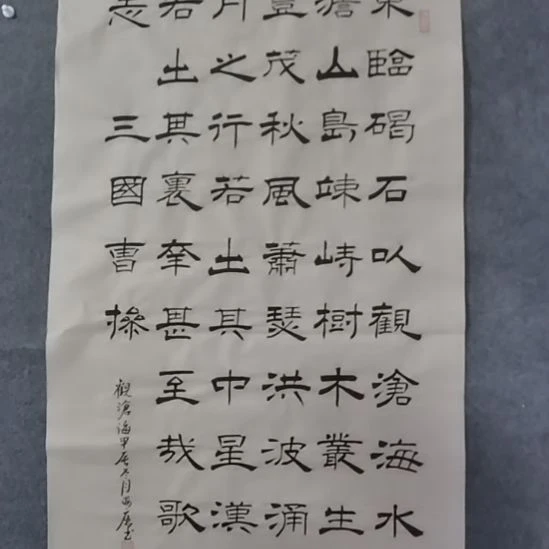 東臨碣石以觀滄海水
澹山島竦峙樹木叢生
豐茂秋風蕭瑟洪波涌
月之行若出其中星漢
若出其裏幸甚至哉歌
志 三國曹操
觀滄海甲辰